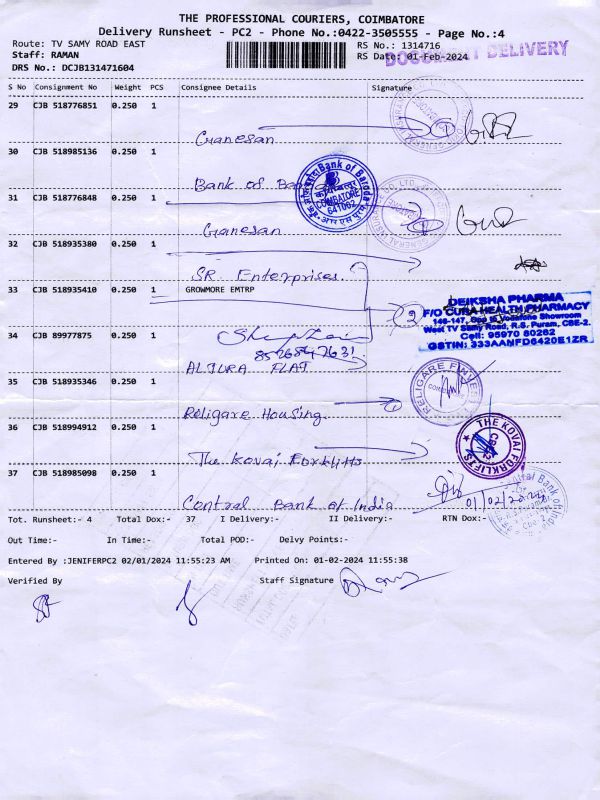 THE PROFESSIONAL COURIERS, COIMBATORE
Delivery Runsheet - PC2 - Phone No.:0422-3505555 - Page No.:4
Route: TV SAMY ROAD EAST
RS No.: 1314716
Staff: RAMAN
RS Date: 01-Feb-2024
DOCUMENT DELIVERY
DRS No.: DCJB131471604
S No Consignment No Weight PCS Consignee Details Signature
29 CJB 518776851 0.250 1
Ganesan
30 CJB 518985136 0.250 1
Bank of
Bank of Baroda
COIMBATORE
641062
31 CJB 518776848 0.250 1
Ganesan
32 CJB 518935380 0.250 1
SR. Enterprises.
33 CJB 518935410 0.250 1 GROWMORE EMTRP
2
DEIKSHA PHARMA
F/O CURA HEALTH PHARMACY
146-147, Opp to Vodafone Showroom
West TV Samy Road, R.S. Puram, CBE-2.
Cell: 95970 80262
GSTIN: 333AANFD6420E1ZR
34 CJB 89977875 0.250 1
FLAT
35 CJB 518935346 0.250 1
Religare Housing.
36 CJB 518994912 0.250 1
THE KOVAI FORKLIFTS
The Kovai Forklifts
37 CJB 518985098 0.250 1
Central Bank of India
01/02/2024
Tot. Runsheet:- 4 Total Dox:- 37 I Delivery:- II Delivery:- RTN Dox:-
Out Time:- In Time:- Total POD:- Delvy Points:-
Entered By :JENIFERPC2 02/01/2024 11:55:23 AM Printed On: 01-02-2024 11:55:38
Verified By Staff Signature